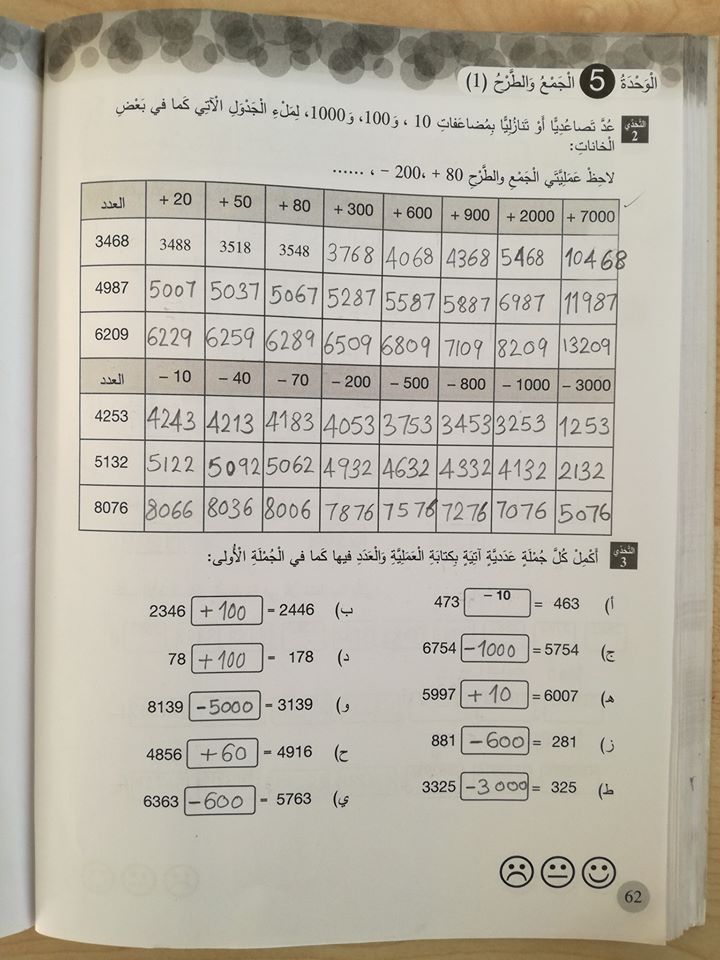 الْوَحْدَةُ 5 الْجَمْعُ وَالطَّرْحُ (1)
التَّحَدّي 2 عُدَّ تَصاعُدِيًّا أَوْ تَنازُلِيًّا بِمُضاعَفاتِ 10 ، وَ100، وَ1000، لِمَلْءِ الْجَدْوَلِ الْآتي كَما في بَعْضِ
الْخاناتِ:
لاحِظْ عَمَلِيَّتَي الْجَمْعِ والطَّرْحِ 80 + ،200 − ، ......
العدد + 20 + 50 + 80 + 300 + 600 + 900 + 2000 + 7000
3468 3488 3518 3548 3768 4068 4368 5468 10468
4987 5007 5037 5067 5287 5587 5887 6987 11987
6209 6229 6259 6289 6509 6809 7109 8209 13209
العدد − 10 − 40 − 70 − 200 − 500 − 800 − 1000 − 3000
4253 4243 4213 4183 4053 3753 3453 3253 1253
5132 5122 5092 5062 4932 4632 4332 4132 2132
8076 8066 8036 8006 7876 7576 7276 7076 5076
التَّحَدّي 3 أَكْمِلْ كُلَّ جُمْلَةٍ عَدَدِيَّةٍ آتِيَةٍ بِكِتابَةِ الْعَمَلِيَّةِ وَالْعَدَدِ فيها كَما في الْجُمْلَةِ الْأُولى:
أ) 473 − 10 = 463
ب) 2346 +100 = 2446
ج) 6754 -1000 = 5754
د) 78 +100 = 178
هـ) 5997 +10 = 6007
و) 8139 -5000 = 3139
ز) 881 -600 = 281
ح) 4856 +60 = 4916
ط) 3325 -3000 = 325
ي) 6363 -600 = 5763
62